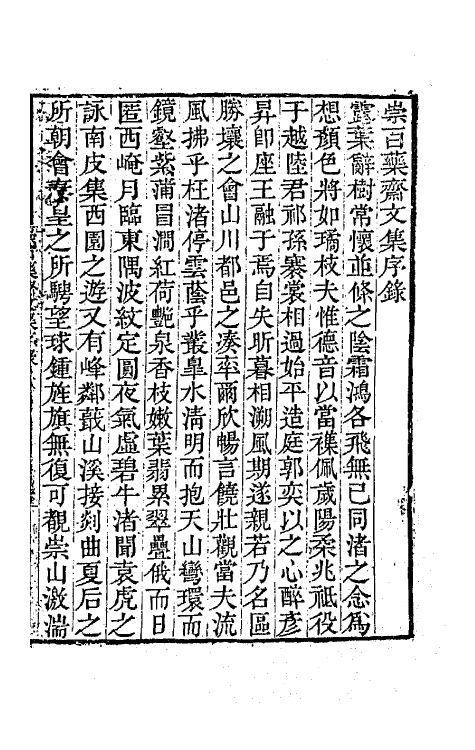 崇百藥齋文集序錄
靈葉辭樹常懷並條之陰霜鴻各飛無已同渚之念為
想顏色將如璚枝夫惟德音以當襍佩歲陽柔兆祗役
于越陸君祁孫褰裳相過始平造庭郭奕以之心醉彥
昇卽座王融于焉自失昕暮相溯風期遂親若乃名區
勝壤之會山川都邑之凑率爾欣暢言饒壯觀當夫流
風拂乎枉渚停雲蔭乎叢皐水淸明而抱天山彎環而
鏡壑紫蒲冒澗紅荷艷泉香枝嫩葉翡累翠疊俄而日
匿西崦月臨東隅波紋定圓夜氣虛碧牛渚聞袁虎之
詠南皮集西園之遊又有峰鄰蕺山溪接剡曲夏后之
所朝會秦皇之所騁望球鍾旌旗無復可觀崇山激湍